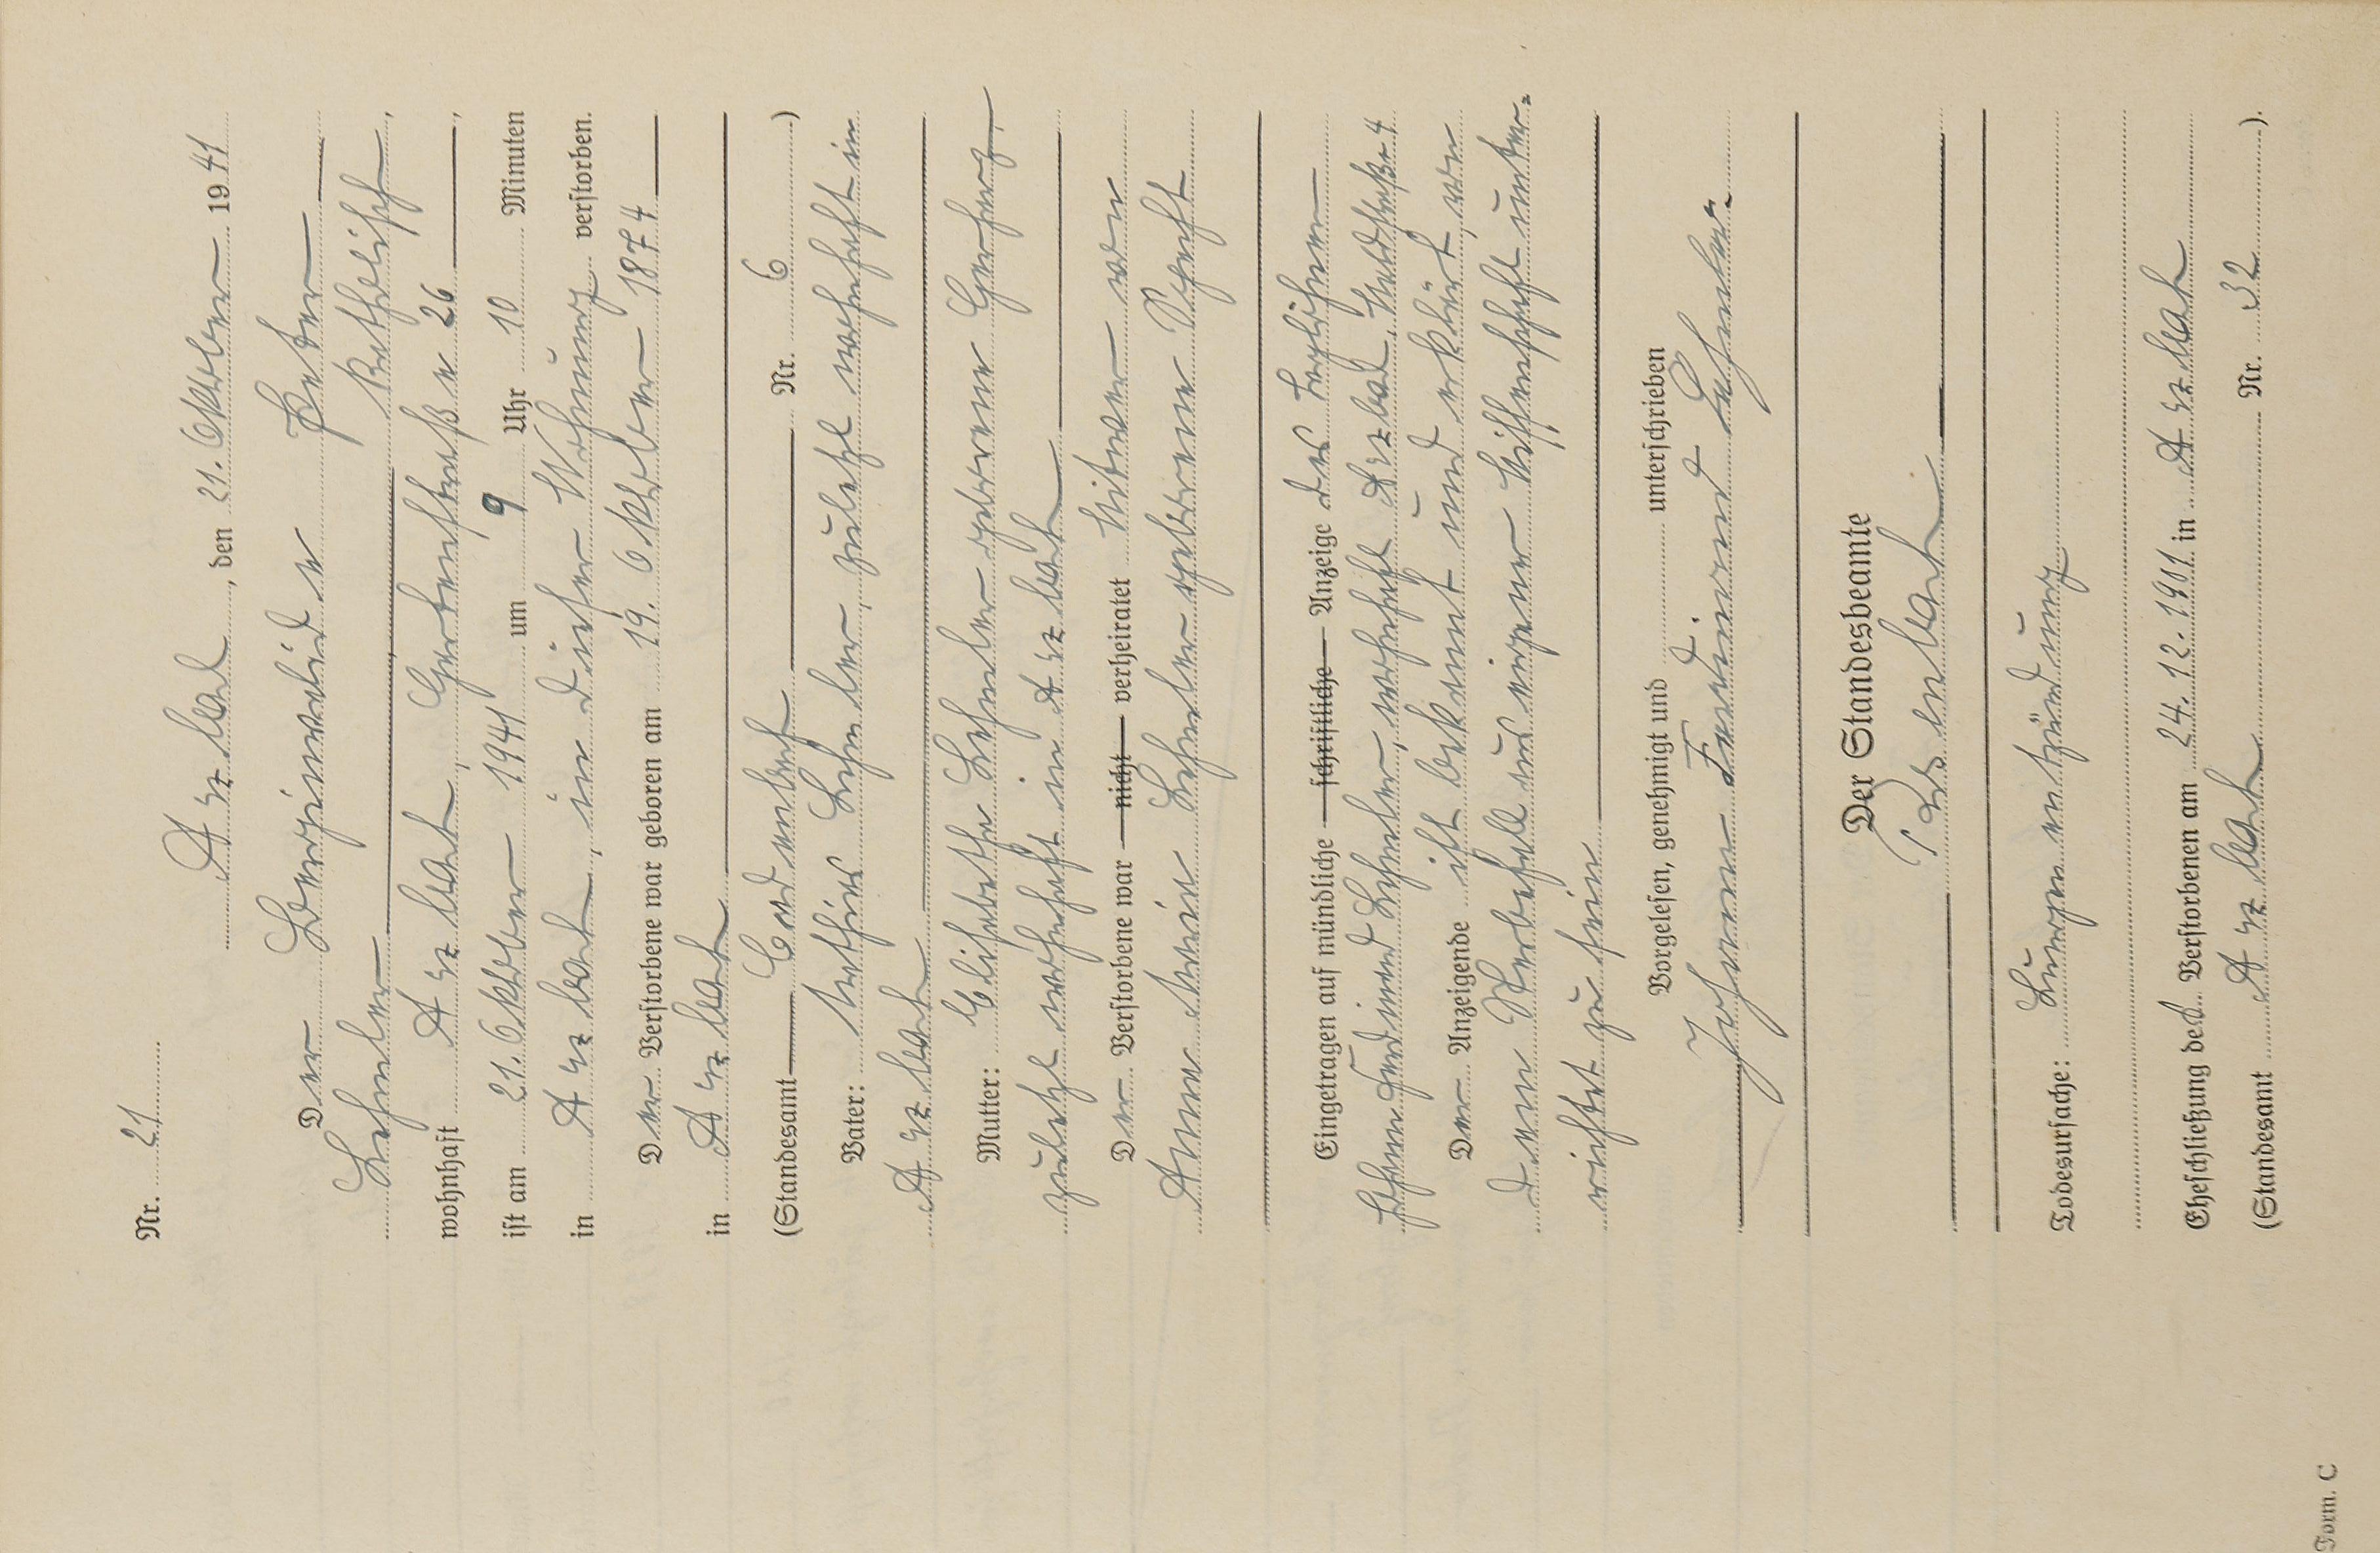 Nr. 21
Arzbach, den 21. Oktober 1941
Der Berginvalide Peter
Lehmler katholisch,
wohnhaft Arzbach, Gartenstraße 26,
ist am 21. Oktober 1941 um 9 Uhr 10 Minuten
in Arzbach, in dieser Wohnung verstorben.
Der Verstorbene war geboren am 19. Oktober 1874
in Arzbach
(Standesamt Cadenbach Nr. 6)
Vater: Mathias Lehmler, zuletzt wohnhaft in
Arzbach
Mutter: Elisabetha Lehmler geborene
zuletzt wohnhaft in Arzbach
Der Verstorbene war nicht verheiratet Witwer von
Anna Maria Lehmler geborene
Eingetragen auf mündliche schriftliche Anzeige des
Ferdinand Lehmler, wohnhaft Arzbach, 4
Der Anzeigende ist bekannt und erklärt, von
dem Sterbefall aus eigener Wissenschaft unter-
richtet zu sein
Vorgelesen, genehmigt und unterschrieben
Johann Ferdinand Lehmler
Der Standesbeamte
Todesursache: Lungenentzündung
Eheschließung des Verstorbenen am 24.12.1901 in Arzbach
(Standesamt Arzbach Nr. 32).
Form. C